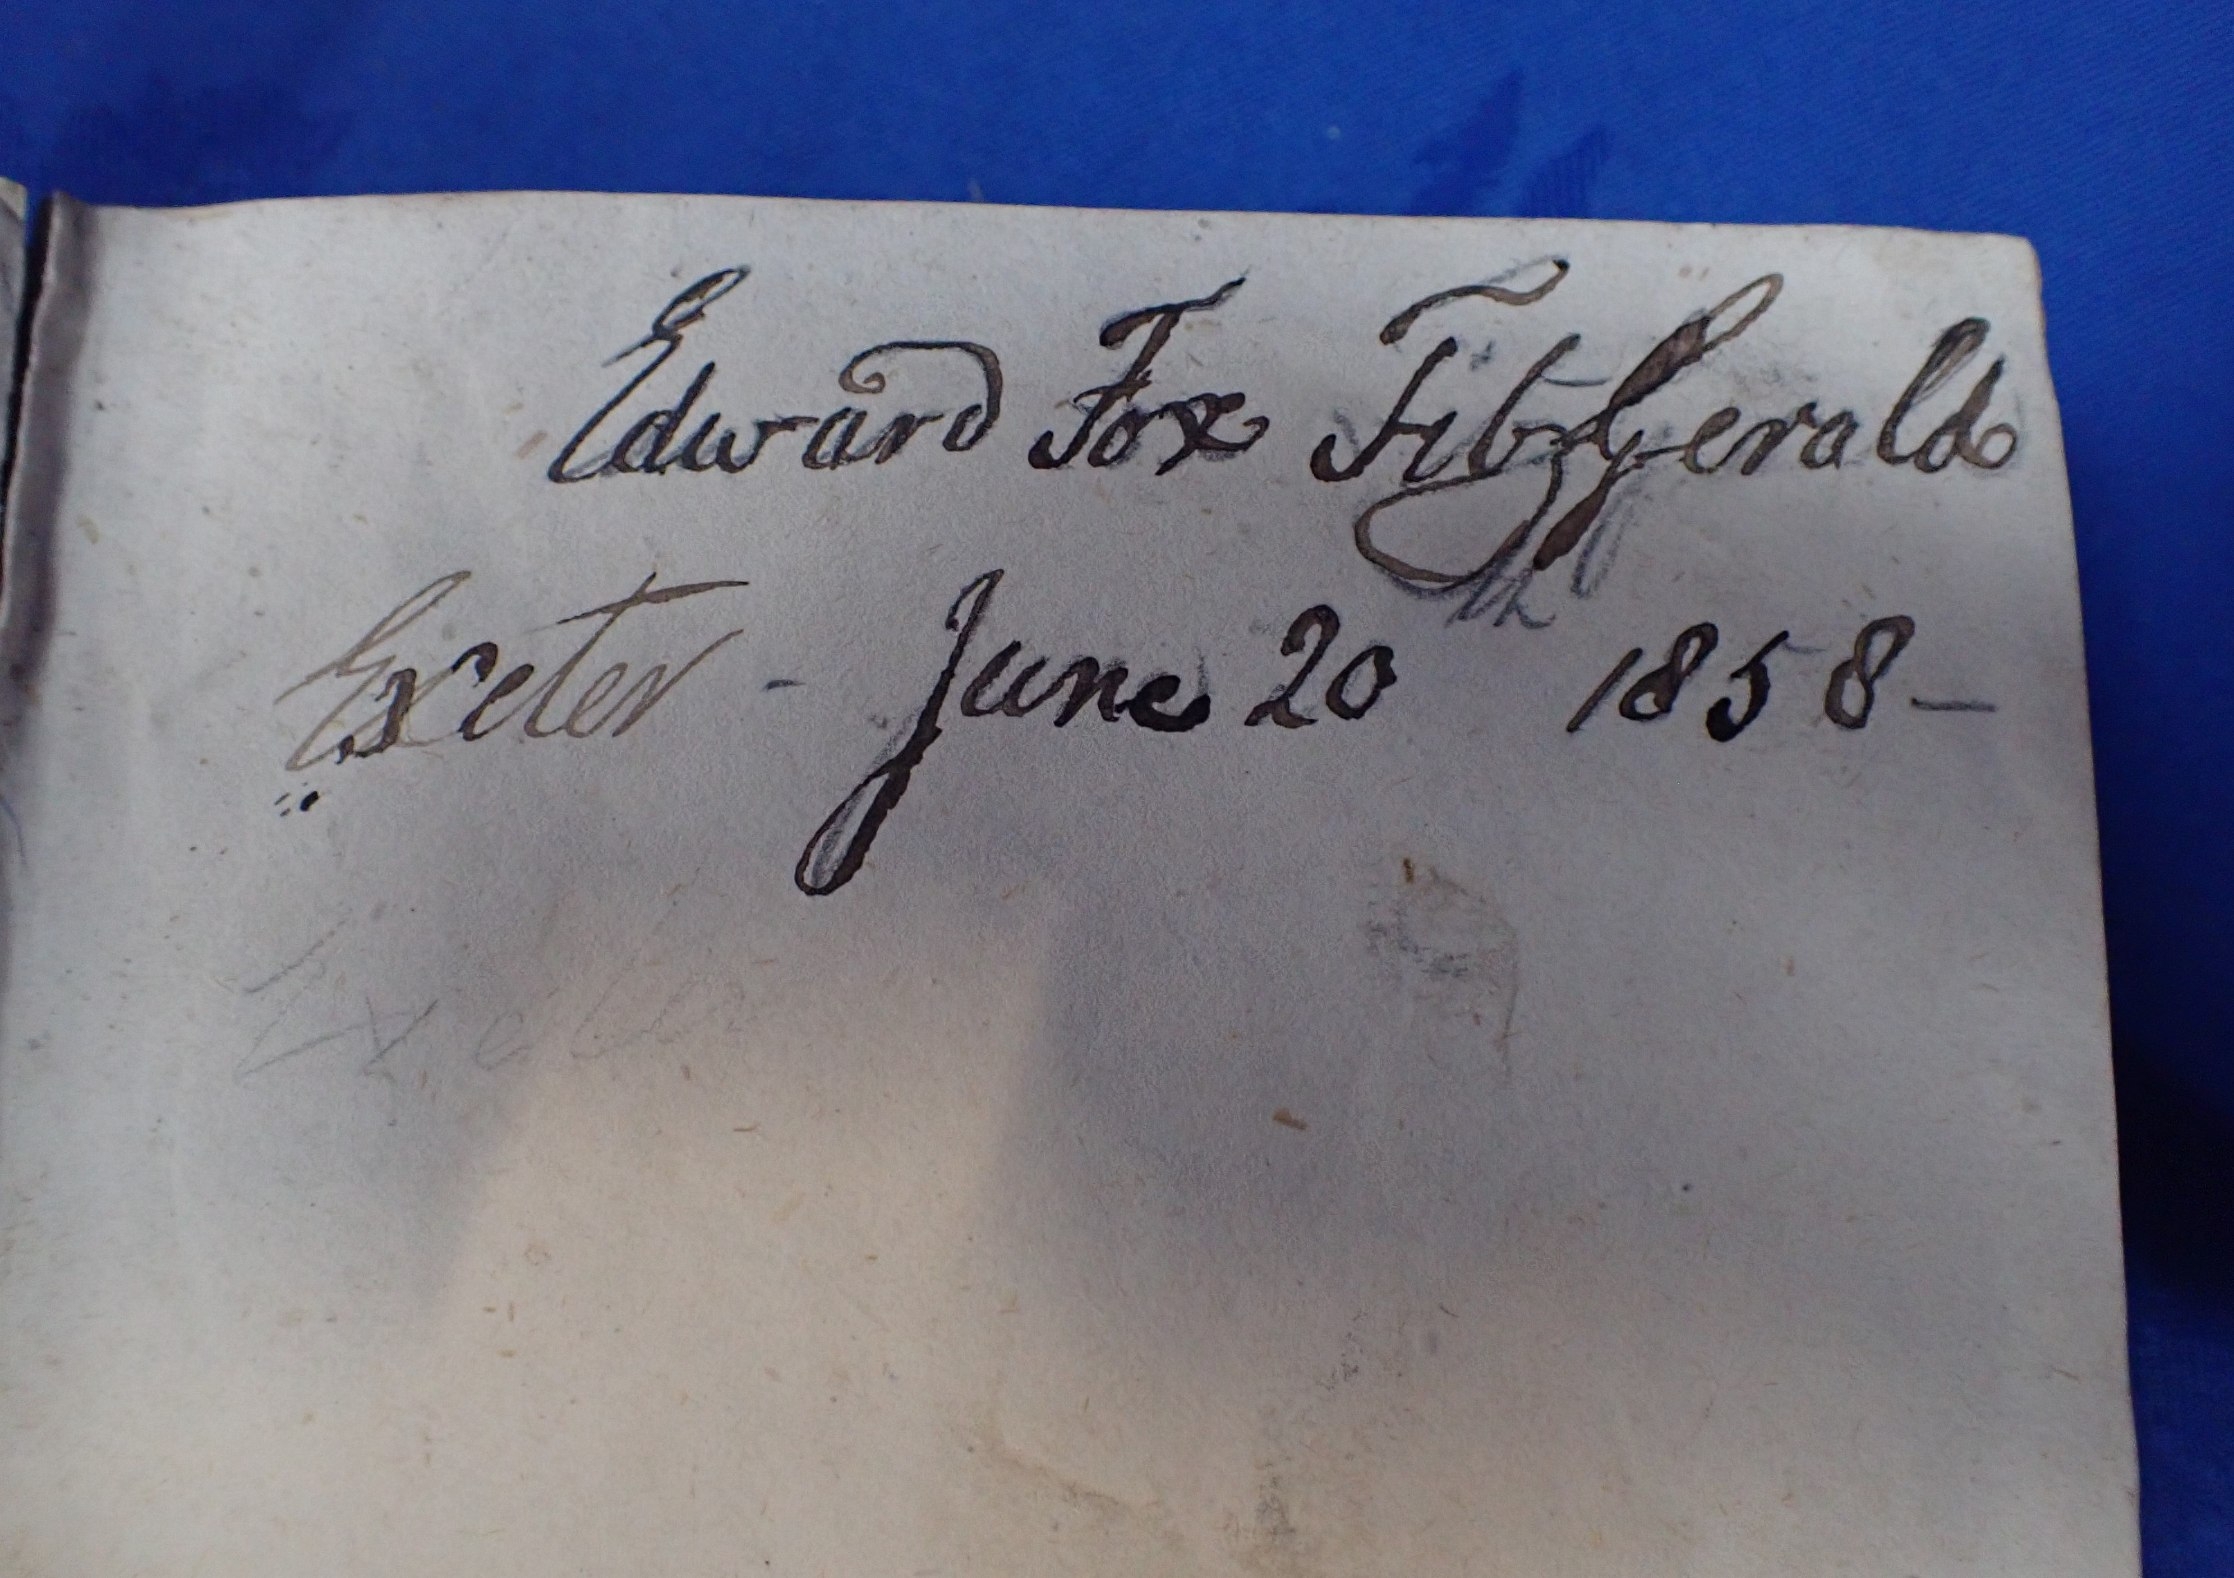 Edward Fox FitzGerald
Exeter - June 20th 1858 -